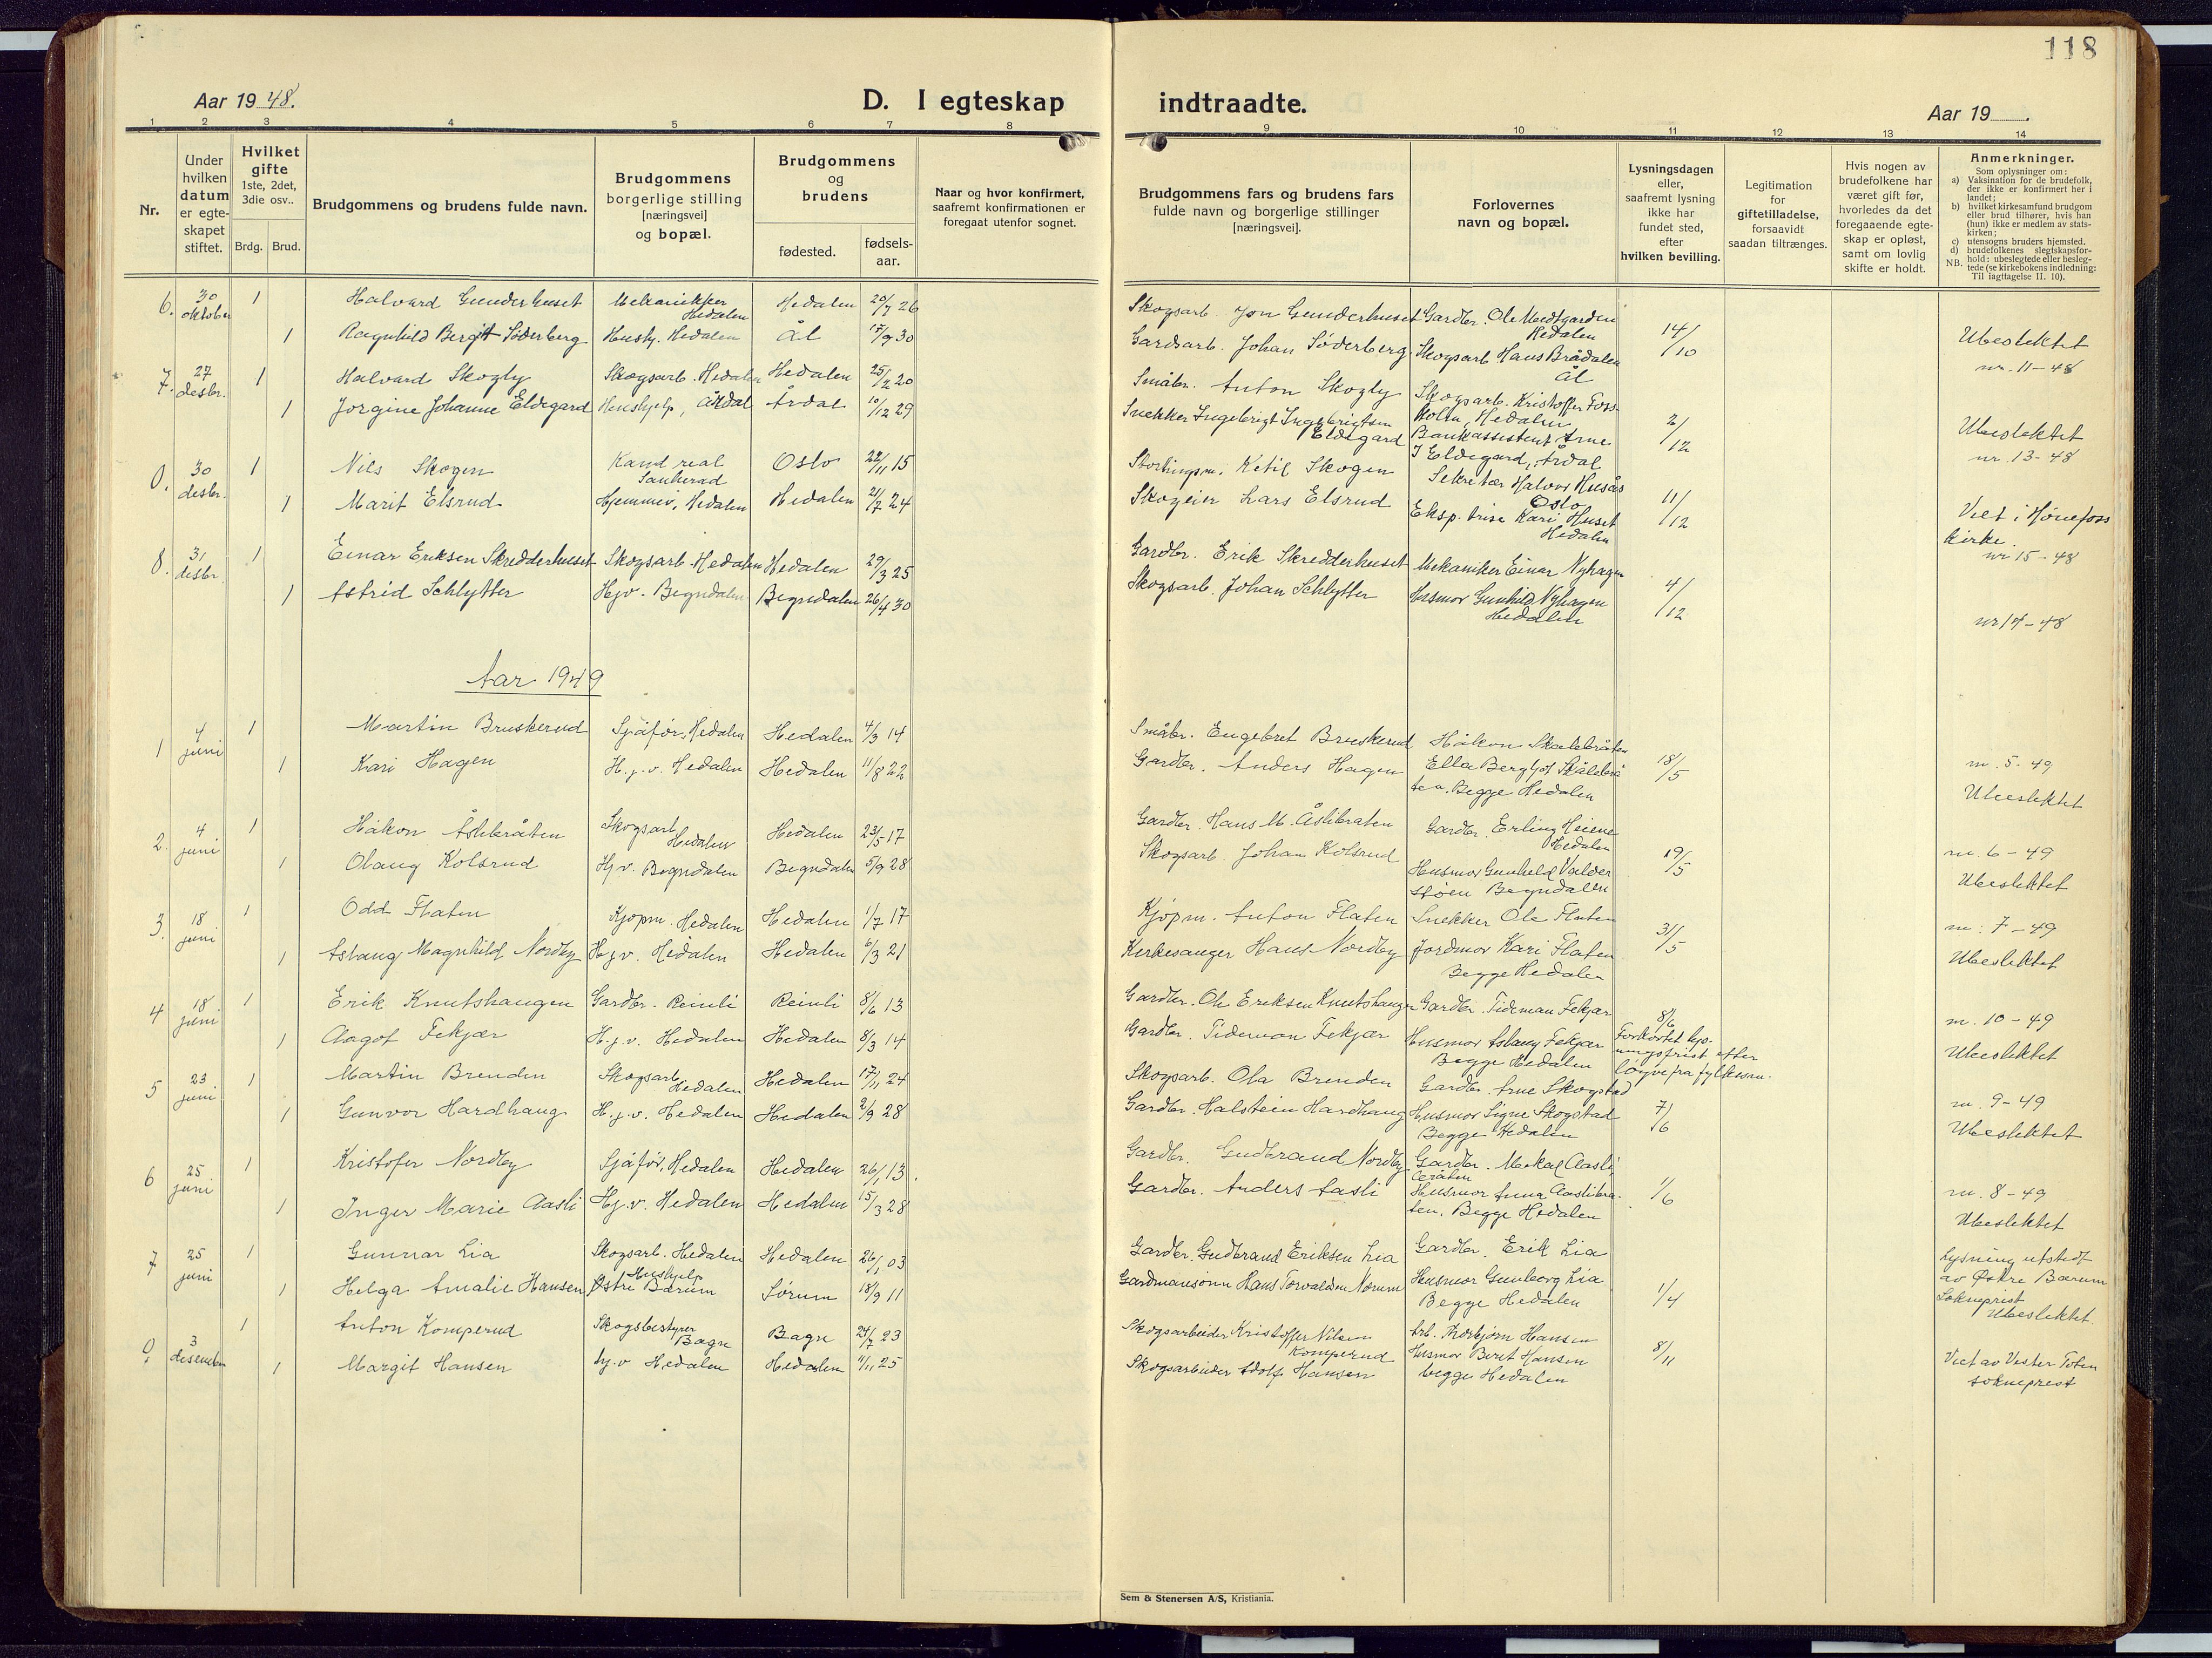 118
Aar 1948.
D. I egteskap indtraadte.
Aar 19
1 2 3 4 5 6 7 8 9 10 11 12 13 14
Nr.
Under hvilken datum er egteskapet stiftet.
Hvilket gifte 1ste, 2det, 3die osv..
Brdg. Brud.
Brudgommens og brudens fulde navn.
Brudgommens borgerlige stilling [næringsvei] og bopæl.
Brudgommens og brudens
fødested.
fødsels-aar.
Naar og hvor konfirmert, saafremt konfirmationen er foregaat utenfor sognet.
Brudgommens fars og brudens fars fulde navn og borgerlige stillinger [næringsvei].
Forlovernes navn og bopæl.
Lysningsdagen eller, saafremt lysning ikke har fundet sted, efter hvilken bevilling.
Legitimation for giftetilladelse, forsaavidt saadan tiltrænges.
Hvis nogen av brudefolkene har været gift før, hvorledes da det foregaaende egteskap er opløst, samt om lovlig skifte er holdt.
Anmerkninger.
Som oplysninger om:
a) Vaksination for de brudefolk, der ikke er konfirmert her i landet;
b) hvilket kirkesamfund brudgom eller brud tilhører, hvis han (hun) ikke er medlem av statskirken;
c) utensogns bruders hjemsted.
d) brudefolkenes slegtskapsforhold: ubeslegtede eller beslegtede (se kirkebokens indledning: Til iagttagelse II. 10).
NB.
6. 30 oktober 1 Halvard Gunderhuset Mekanikker Hedalen Hedalen 20/7 26 Skogsarb. Jon Gunderhuset Gardbr. Ole Hedalen 14/10 Ubeslektet
1 Ragnhild Bergit Söderberg Hushj. Hedalen Ål 17/9 30 Gardsarb. Johan Söderberg Skogsarb. Hans Brådalen Ål nr. 11-48
7. 27 desbr. 1 Halvard Skogly Skogsarb. Hedalen Hedalen 25/2 20 Småbr. Anton Skogly Skogsarb. Kristoffer Fossholm, Hedalen 2/12 Ubeslektet
1 Jorgine Johanne Eldegard Hushjelp, Årdal Årdal 10/12 29 Snekker Ingebrigt Ingebrigtsen Eldegard Bankassistent Arne I Eldegard, Årdal nr. 13-48
0. 30 desbr. 1 Nils Skogen Kand real Sauherad Oslo 22/11 15 Stortingsm. Ketil Skogen Sekretær Halvor Husås Oslo 11/12 Viet i Hønefoss kirke
1 Marit Elsrud Hjemmev. Hedalen Hedalen 21/7 24 Skogeier Lars Elsrud Eksp. trise Kari Huset Hedalen nr. 15-48
8. 31 desbr. 1 Einar Eriksen Skredderhuset Skogsarb. Hedalen Hedalen 29/3 25 Gardbr. Erik Skredderhuset Mekaniker Einar Nyhagen 4/12
1 Astrid Schlytter Hjv. Begndalen Begndalen 26/4 30 Skogsarb. Johan Schlytter Husmor Gunhild Nyhagen Hedalen nr 17-48
Aar 1949
1 4 juni 1 Martin Bruskerud Sjåfør, Hedalen Hedalen 4/3 14 Småbr. Engebret Bruskerud Håkon Skålebråten 18/5 nr. 5-49
1 Kari Hagen H.j.v. Hedalen Hedalen 11/8 22 Gardbr. Anders Hagen Ella Skålebråten. Begge Hedalen Ubeslektet
2. 4 juni 1 Håkon Aslebråten Skogsarb Hedalen Hedalen 23/5 17 Gardbr. Hans M. Åslibråten Gardbr. Erling Heiene Hedalen 19/5 nr. 6-49
1 Olaug Kolsrud Hjv. Begndalen Begndalen 5/9 28 Skogsarb. Johan Kolsrud Husmor Gunhild Valderstøen Begndalen Ubeslektet
3. 18 juni 1 Odd Flaten Kjøpm. Hedalen Hedalen 1/7 17 Kjøpm. Anton Flaten Snekker Ole Flaten 31/5 nr: 7-49
1 Aslaug Magnhild Nordby Hjv. Hedalen Hedalen 6/3 21 Kirkesanger Hans Nordby Jordmor Kari Flaten Begge Hedalen Ubeslektet
4 18 juni 1 Erik Knutshaugen Gardbr. Reinli Reinli 8/6 13 Gardbr. Ole Eriksen Knutshaugen Gardbr. Tideman Fekjær 8/6 nr. 10-49
1 Aagot Fekjær H.j.v. Hedalen Hedalen 8/3 14 Gardbr. Tideman Fekjær Husmor Aslaug Fekjær Begge Hedalen Forkortet lysningsfrist efter løyve fra fylkesm. Ubeslektet
5 23 juni 1 Martin Brenden Skogsarb Hedalen Hedalen 17/11 24 Skogsarb. Ola Brenden Gardbr. Arne Skogstad nr. 9-49
1 Gunvor Hardhaug H.j.v. Hedalen Hedalen 2/9 28 Gardbr. Halstein Hardhaug Husmor Signe Skogstad Begge Hedalen 7/6 Ubeslektet
6 25 juni 1 Kristofer Nordby Sjåfør, Hedalen Hedalen 26/1 13 Gardbr. Gudbrand Nordby Gardbr. Mikal Aaslibråten 1/6 nr. 8-49
1 Inger Marie Aasli Hj.v. Hedalen Hedalen 15/3 28 Gardbr. Anders Aasli Husmor Anna Aaslibråten. Begge Hedalen Ubeslektet
7 25 juni 1 Gunnar Lia Skogsarb. Hedalen Hedalen 26/1 03 Gardbr. Gudbrand Eriksen Lia Gardbr. Erik Lia Lysning utstedt av Østre Bærum Sokneprest
1 Helga Amalie Hansen Hushjelp Østre Bærum Sørum 18/9 11 Gardmansønn Hans Torvaldsen Husmor Gunborg Lia Begge Hedalen 1/4 Ubeslektet.
0. 3 desember 1 Anton Komperud Skogsbestyrer Bagn Bagn 24/7 23 Skogsarbeider Kristoffer Nilsen Komperud Arb. Thorbjørn Hansen 8/11 Viet av Vester Toten sokneprest
1 Margit Hansen hj.v Hedalen Hedalen 4/11 25 Skogsarbeider Adolf Hansen Husmor Berit Hansen begge Hedalen
Sem & Stenersen A/S, Kristiania.